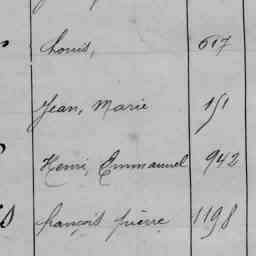 Louis, 617
Jean, Marie 151
Henri, Emmanuel 942
françois pierre 1198